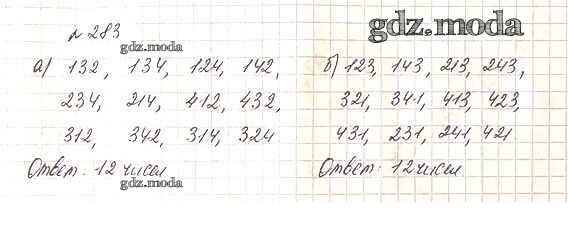 № 283
gdz.moda
gdz.moda
а) 132, 134, 124, 142,
234, 214, 412, 432,
312, 342, 314, 324
Ответ: 12 чисел
gdz.moda
б) 123, 143, 213, 243,
321, 341, 413, 423,
431, 231, 241, 421
Ответ: 12 чисел.
gdz.moda